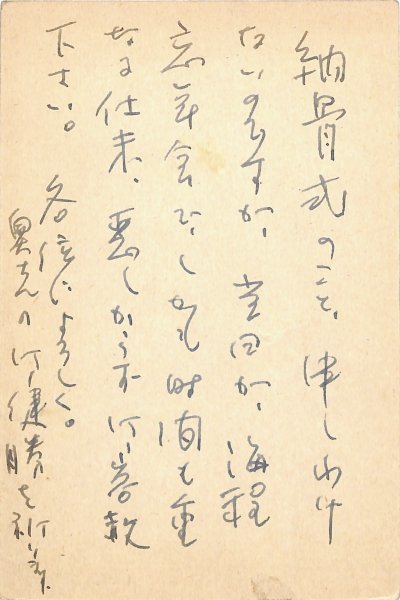 納骨式のこと、申しわけ
ないのですが、当日が、海程
忘年会でしかも時間も重
なる仕末、悪しからず御容赦
下さい。
各位によろしく。
奥さんの御健勝を祈ります。